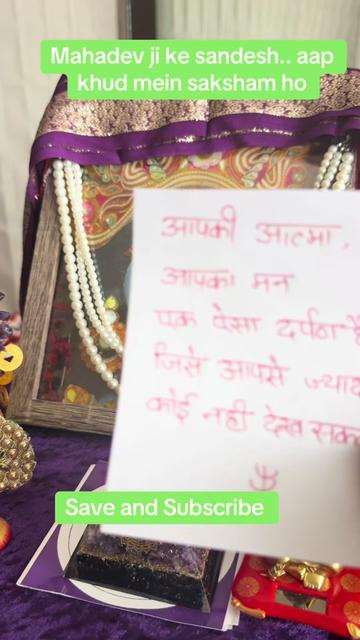 Mahadev ji ke sandesh.. aap
khud mein saksham ho
आपकी आत्मा,
आपका मन
एक ऐसा दर्पण है
जिसे आपसे
कोई नही देख
Save and Subscribe